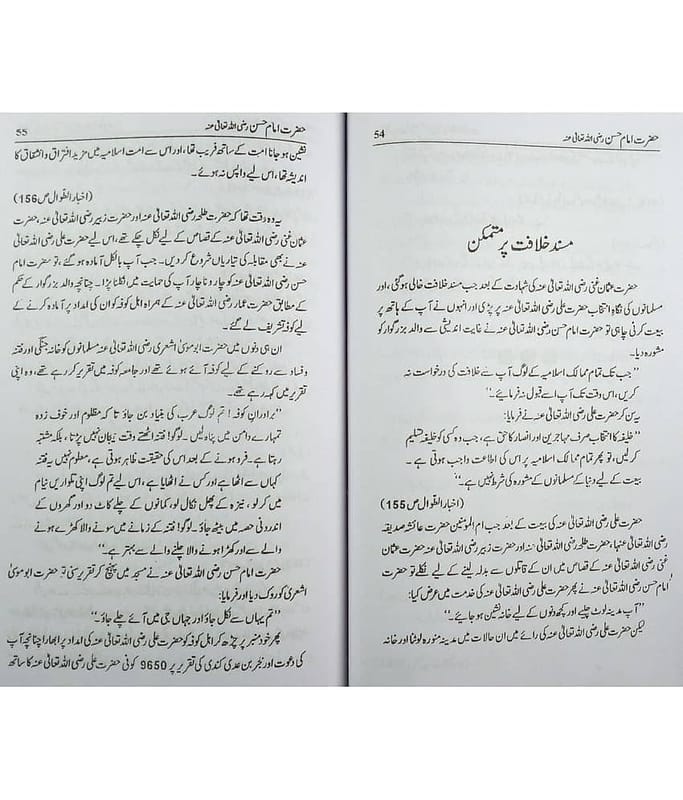 54
حضرت امام حسن رضی اللہ تعالیٰ عنہ
مسند خلافت پر متمکن
حضرت عثمان غنی رضی اللہ تعالیٰ عنہ کی شہادت کے بعد جب مسند خلافت خالی ہوگئی، اور
مسلمانوں کی نگاہِ انتخاب حضرت علی رضی اللہ تعالیٰ عنہ پر پڑی اور انہوں نے آپ کے ہاتھ پر
بیعت کرنی چاہی تو حضرت امام حسن رضی اللہ تعالیٰ عنہ نے غایت اندیشی سے والد بزرگوار کو
مشورہ دیا۔
''جب تک تمام ممالک اسلامیہ کے لوگ آپ سے خلافت کی درخواست نہ
کریں، اس وقت تک آپ اسے قبول نہ فرمایئے۔''
یہ سن کر حضرت علی رضی اللہ تعالیٰ عنہ نے فرمایا:
''خلیفہ کا انتخاب صرف مہاجرین اور انصار کا حق ہے، جب وہ کسی کو خلیفہ تسلیم
کر لیں، تو پھر تمام ممالک اسلامیہ پر اس کی اطاعت واجب ہوتی ہے۔
بیعت کے لیے دنیا کے مسلمانوں کے مشورہ کی شرط نہیں ہے۔''
(اخبار الطوال ص 155)
حضرت علی رضی اللہ تعالیٰ عنہ کی بیعت کے بعد جب ام المؤمنین حضرت عائشہ صدیقہ
رضی اللہ تعالیٰ عنہا، حضرت طلحہ رضی اللہ تعالیٰ عنہ اور حضرت زبیر رضی اللہ تعالیٰ عنہ حضرت عثمان
غنی رضی اللہ تعالیٰ عنہ کے قصاص میں ان کے قاتلوں سے بدلہ لینے کے لیے نکلے تو حضرت
امام حسن رضی اللہ تعالیٰ عنہ نے پھر حضرت علی رضی اللہ تعالیٰ عنہ کی خدمت میں عرض کیا:
''آپ مدینہ لوٹ چلیے اور کچھ دنوں کے لیے خانہ نشین ہو جایئے۔''
لیکن حضرت علی رضی اللہ تعالیٰ عنہ کی رائے میں ان حالات میں مدینہ منورہ لوٹنا اور خانہ
55
حضرت امام حسن رضی اللہ تعالیٰ عنہ
نشین ہو جانا امت کے ساتھ فریب تھا، اور اس سے امت اسلامیہ میں مزید افتراق و انشقاق کا
اندیشہ تھا، اس لیے واپس نہ ہوئے۔
(اخبار الطوال ص 156)
یہ وہ وقت تھا کہ حضرت طلحہ رضی اللہ تعالیٰ عنہ اور حضرت زبیر رضی اللہ تعالیٰ عنہ، حضرت
عثمان غنی رضی اللہ تعالیٰ عنہ کے قصاص کے لیے نکل چکے تھے، اس لیے حضرت علی رضی اللہ تعالیٰ
عنہ نے بھی مقابلہ کی تیاریاں شروع کر دیں۔ جب آپ بالکل آمادہ ہو گئے، تو حضرت امام
حسن رضی اللہ تعالیٰ عنہ کو چار و ناچار آپ کی حمایت میں نکلنا پڑا۔ چنانچہ والد بزرگوار کے حکم
کے مطابق حضرت عمار رضی اللہ تعالیٰ عنہ کے ہمراہ اہل کوفہ کو ان کی امداد پر آمادہ کرنے کے
لیے کوفہ تشریف لے گئے۔
ان ہی دنوں میں حضرت ابو موسیٰ اشعری رضی اللہ تعالیٰ عنہ مسلمانوں کو خانہ جنگی اور فتنہ
و فساد سے روکنے کے لیے کوفہ آئے ہوئے تھے اور جامعہ کوفہ میں تقریر کر رہے تھے، وہ اپنی
تقریر میں کہہ رہے تھے۔
''برادرانِ کوفہ! تم لوگ عرب کی بنیاد بن جاؤ تا کہ مظلوم اور خوف زدہ
تمہارے دامن میں پناہ لیں۔ لوگو! فتنہ اٹھتے وقت پہچان نہیں پڑتا، بلکہ مشتبہ
رہتا ہے۔ فرو ہونے کے بعد اس کی حقیقت ظاہر ہوتی ہے، معلوم نہیں یہ فتنہ
کہاں سے اٹھا ہے اور کس نے اٹھایا ہے، اس لیے تم لوگ اپنی تلواریں نیام
میں کر لو، نیزہ کے پھل نکال لو، کمانوں کے چلے کاٹ دو اور گھروں کے
اندرونی حصہ میں بیٹھ جاؤ۔ لوگو! فتنہ کے زمانے میں سونے والا کھڑے ہونے
والے سے اور کھڑا ہونے والا چلنے والے سے بہتر ہے۔''
حضرت امام حسن رضی اللہ تعالیٰ عنہ نے مسجد میں پہنچ کر تقریر سنی تو حضرت ابو موسیٰ
اشعری کو روک دیا اور فرمایا:
''تم یہاں سے نکل جاؤ اور جہاں جی میں آئے چلے جاؤ۔''
پھر خود منبر پر چڑھ کر اہل کوفہ کو حضرت علی رضی اللہ تعالیٰ عنہ کی امداد پر ابھارا چنانچہ آپ
کی دعوت اور حجر بن عدی کندی کی تقریر پر 9650 کوفی حضرت علی رضی اللہ تعالیٰ عنہ کا ساتھ